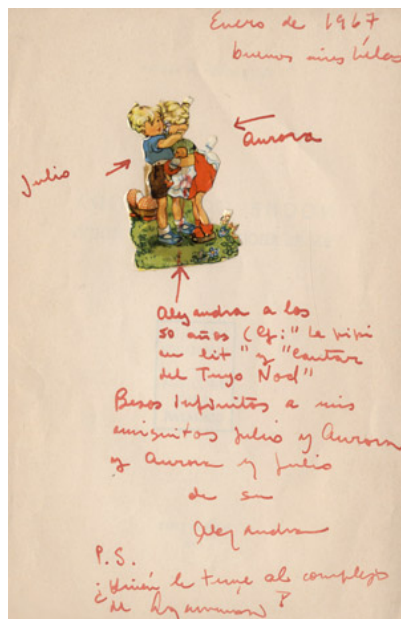 Enero de 1967
buenos aires hélas
aurora
Julio
alejandra a los
50 años (Cf: "Le pipi
au lit" y "Cantar
del Tuyo Nod"
Besos infinitos a mis
amiguitos Julio y Aurora
y Aurora y Julio
de su
Alejandra
P.S.
¿Quién le teme al complejo
de ?